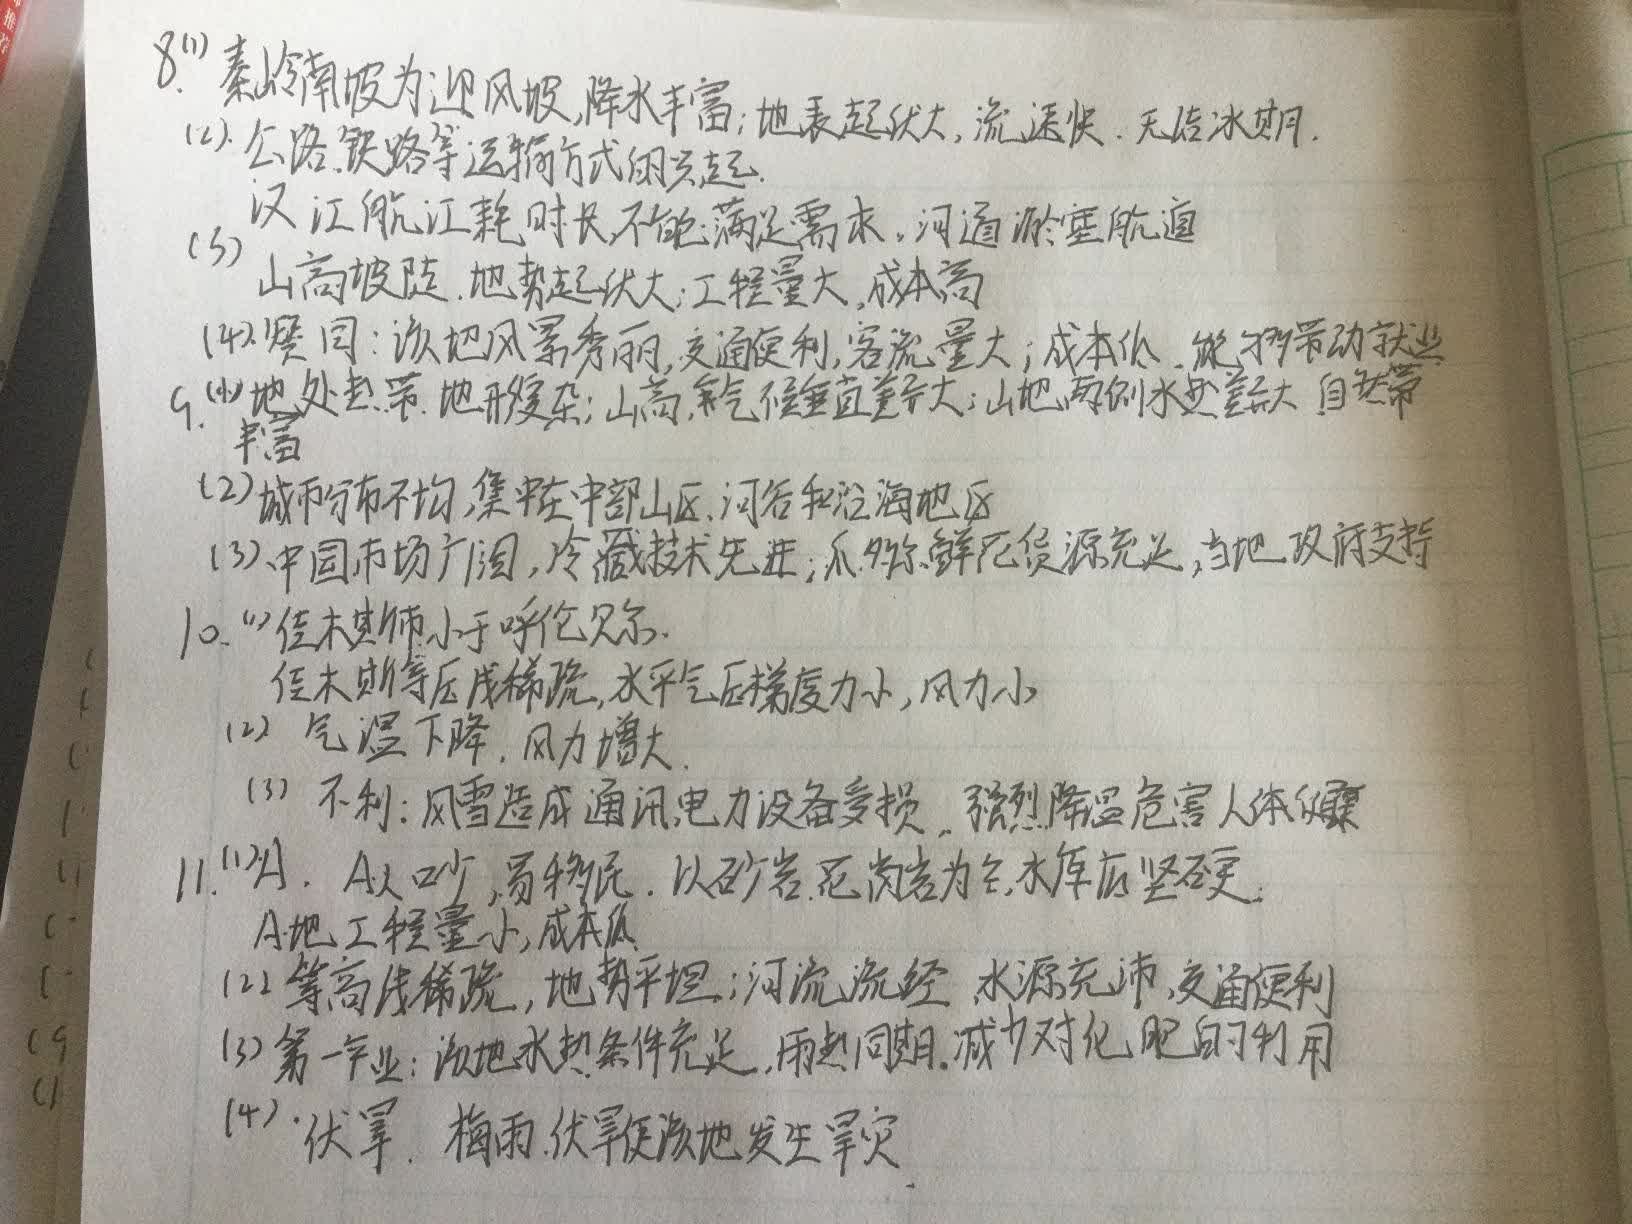 8.(1) 秦岭南坡为迎风坡,降水丰富;地表起伏大,流速快.无结冰期.
(2).公路.铁路等运输方式的兴起.
汉江航江耗时长,不能满足需求.河道淤塞航道
(3)
山高坡陡.地势起伏大;工程量大,成本高
(4).赞同:该地风景秀丽,交通便利,客流量大;成本低.能够带动就业
9.(1)地处热带.地形复杂;山高,气候垂直差异大;山地两侧水热差异大 自然带
丰富
(2)城市分布不均,集中在中部山区、河谷和沿海地区
(3).中国市场广阔,冷藏技术先进;厄瓜多尔鲜花货源充足,当地政府支持
10.(1)佳木斯市小于呼伦贝尔.
佳木斯等压线稀疏,水平气压梯度力小,风力小
(2) 气温下降.风力增大.
(3) 不利:风雪造成通讯,电力设备受损.强烈降温危害人体健康
11.(1)A. A人口少,易移民.以砂岩.花岗岩为主,水库底坚硬.
A地工程量小,成本低
(2)等高线稀疏,地势平坦;河流流经 水源充沛,交通便利
(3)第一产业:该地水热条件充足,雨热同期.减少对化肥的利用
(4).伏旱.梅雨.伏旱使该地发生旱灾.